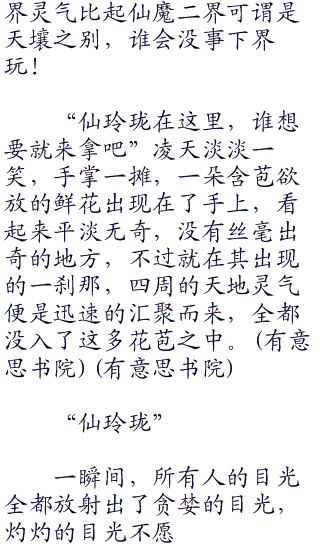 界灵气比起仙魔二界可谓是
天壤之别，谁会没事下界
玩！
“仙玲珑在这里，谁想
要就来拿吧”凌天淡淡一
笑，手掌一摊，一朵含苞欲
放的鲜花出现在了手上，看
起来平淡无奇，没有丝毫出
奇的地方，不过就在其出现
的一刹那，四周的天地灵气
便是迅速的汇聚而来，全都
没入了这多花苞之中。(有意
思书院)(有意思书院)
“仙玲珑”
一瞬间，所有人的目光
全都放射出了贪婪的目光，
灼灼的目光不愿